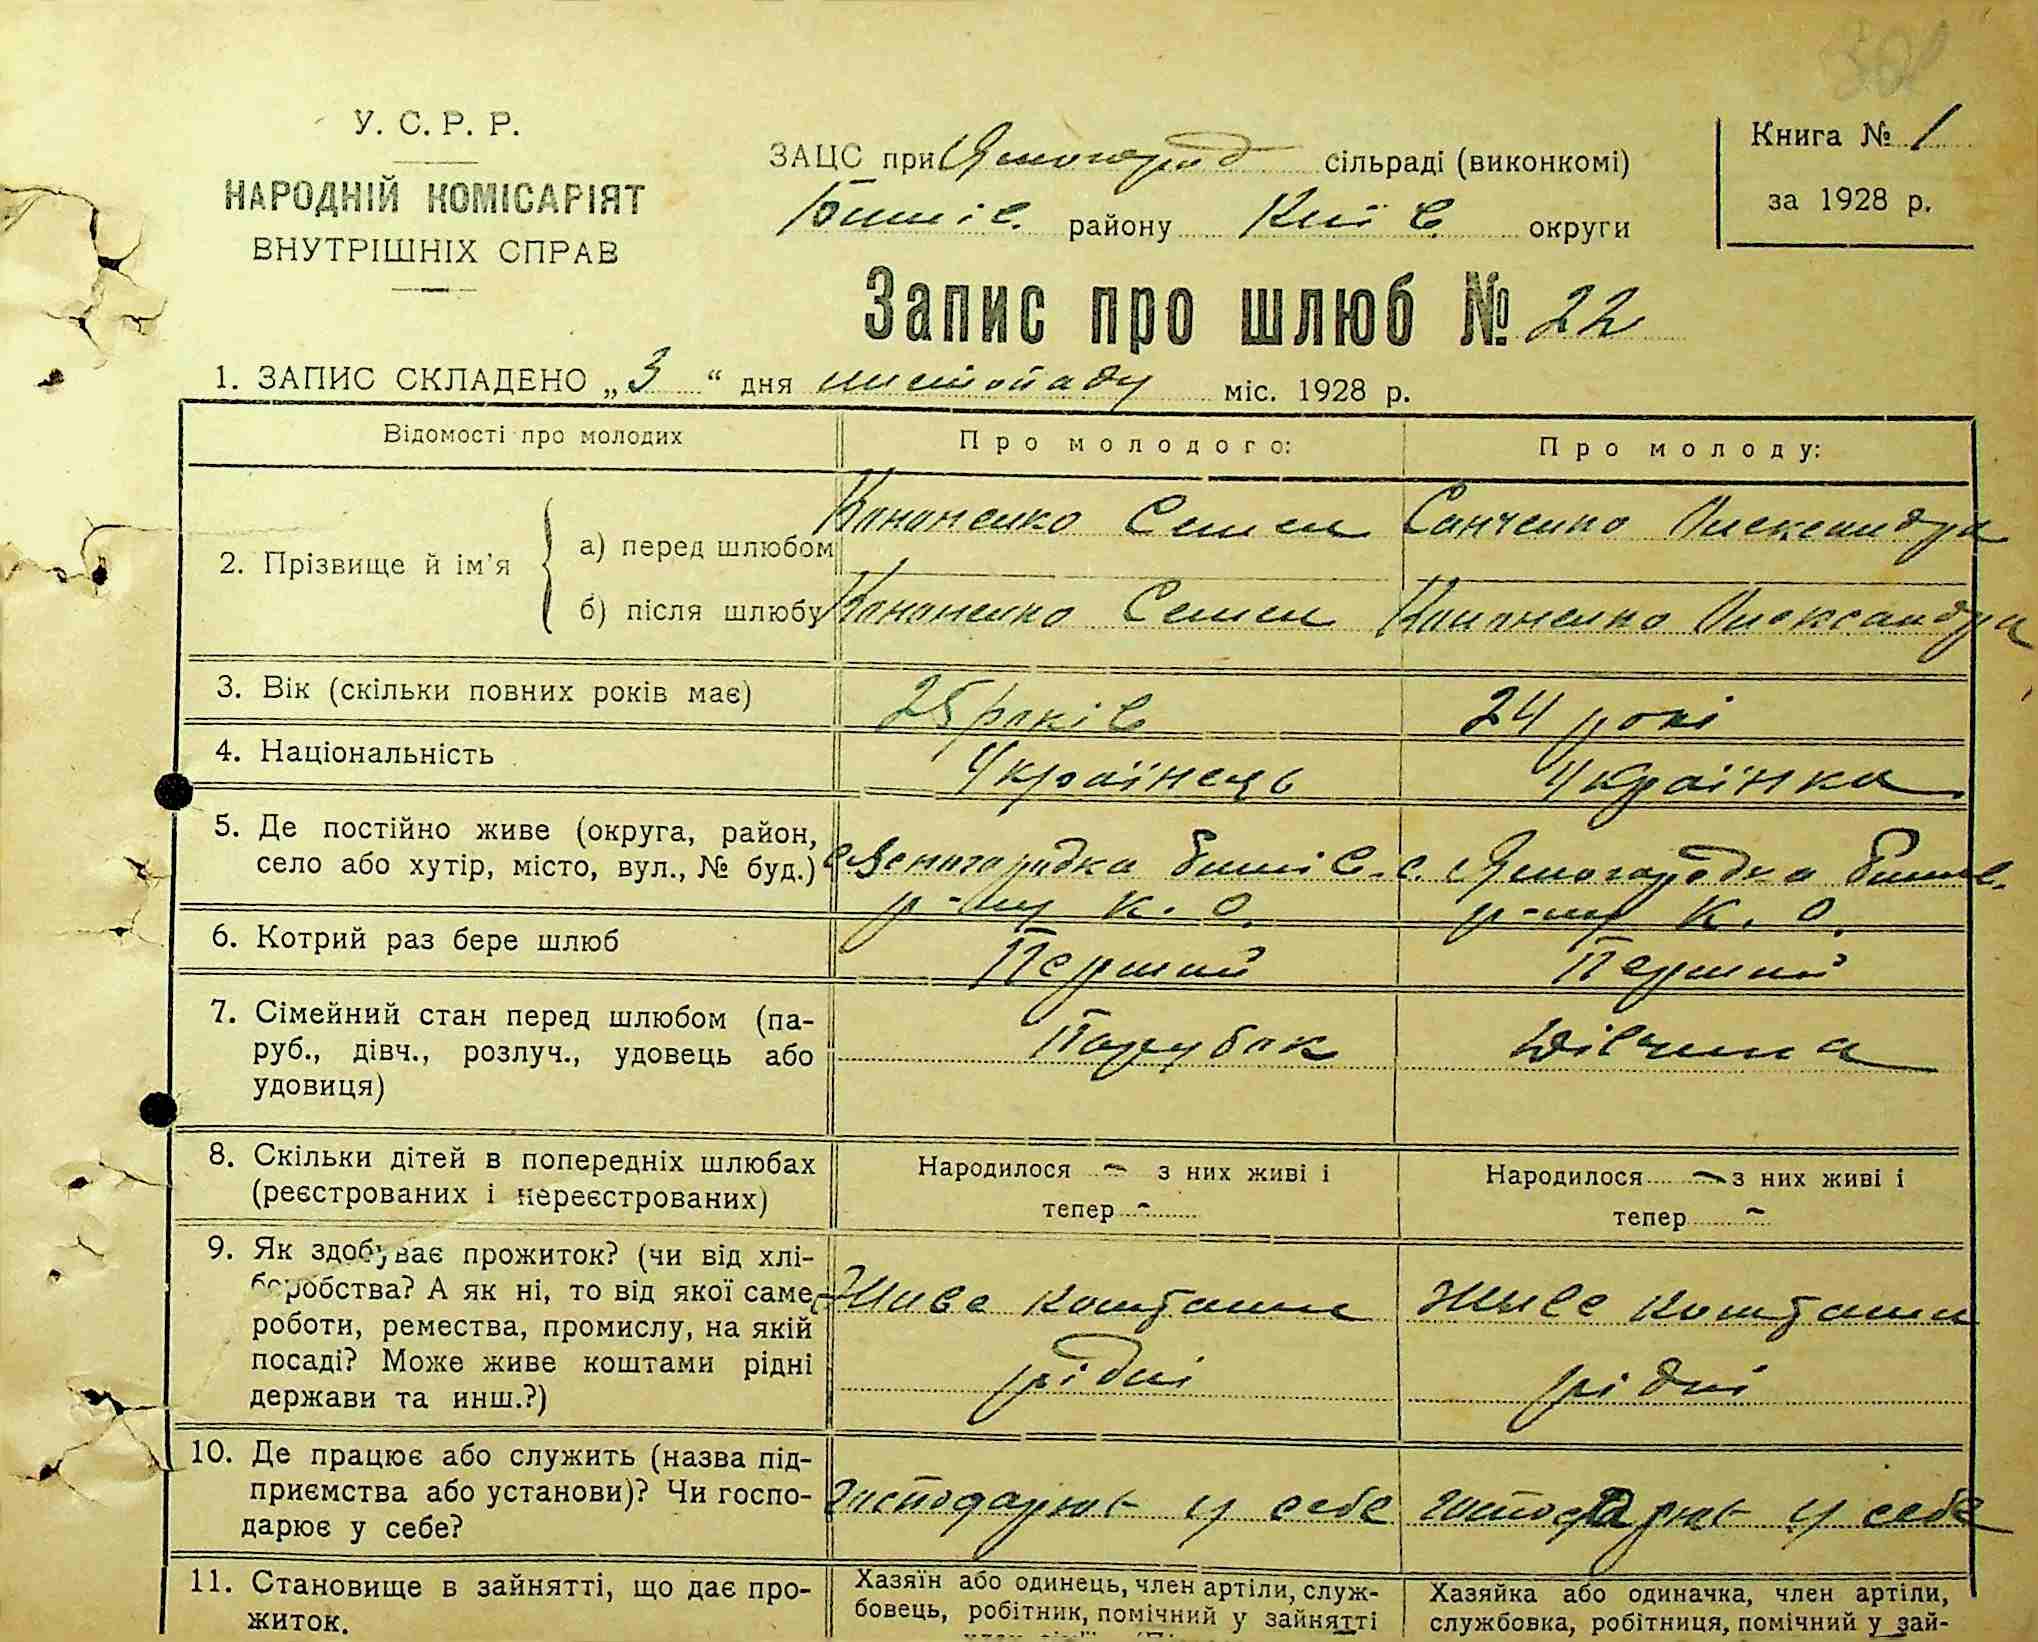 У. С. Р. Р.
НАРОДНІЙ КОМІСАРІЯТ
ВНУТРІШНІХ СПРАВ
ЗАЦС при Ясногород сільраді (виконкомі)
Бишів. району Київ округи
Книга № 1
за 1928 р.
Запис про шлюб № 22
1. ЗАПИС СКЛАДЕНО „3“ дня листопаду міс. 1928 р.
Відомості про молодих
Про молодого:
Про молоду:
2. Прізвище й ім’я
а) перед шлюбом
Кононенко Семен
Санченко Олександра
б) після шлюбу
Кононенко Семен
Кононенко Олександра
3. Вік (скільки повних років має)
25 років
24 рокі
4. Національність
Українець
Українка
5. Де постійно живе (округа, район,
село або хутір, місто, вул., № буд.)
с. Ясногородка Бишів.
р-ну К. О.
с. Ясногородка Бишів.
р-ну К. О.
6. Котрий раз бере шлюб
Перший
Перший
7. Сімейний стан перед шлюбом (па-
руб., дівч., розлуч., удовець або
удовиця)
Парубок
Дівчина
8. Скільки дітей в попередніх шлюбах
(реєстрованих і нереєстрованих)
Народилося - з них живі і
тепер -
Народилося - з них живі і
тепер -
9. Як здобуває прожиток? (чи від хлі-
боробства? А як ні, то від якої саме
роботи, ремества, промислу, на якій
посаді? Може живе коштами рідні
держави та инш.?)
Живе коштами
рідні
Живе коштами
рідні
10. Де працює або служить (назва під-
приємства або установи)? Чи госпо-
дарює у себе?
господарює у себе
господарює у себе
11. Становище в зайнятті, що дає про-
житок.
Хазяїн або одинець, член артілі, служ-
бовець, робітник, помічний у зайнятті
Хазяйка або одиначка, член артіли,
службовка, робітниця, помічний у зай-